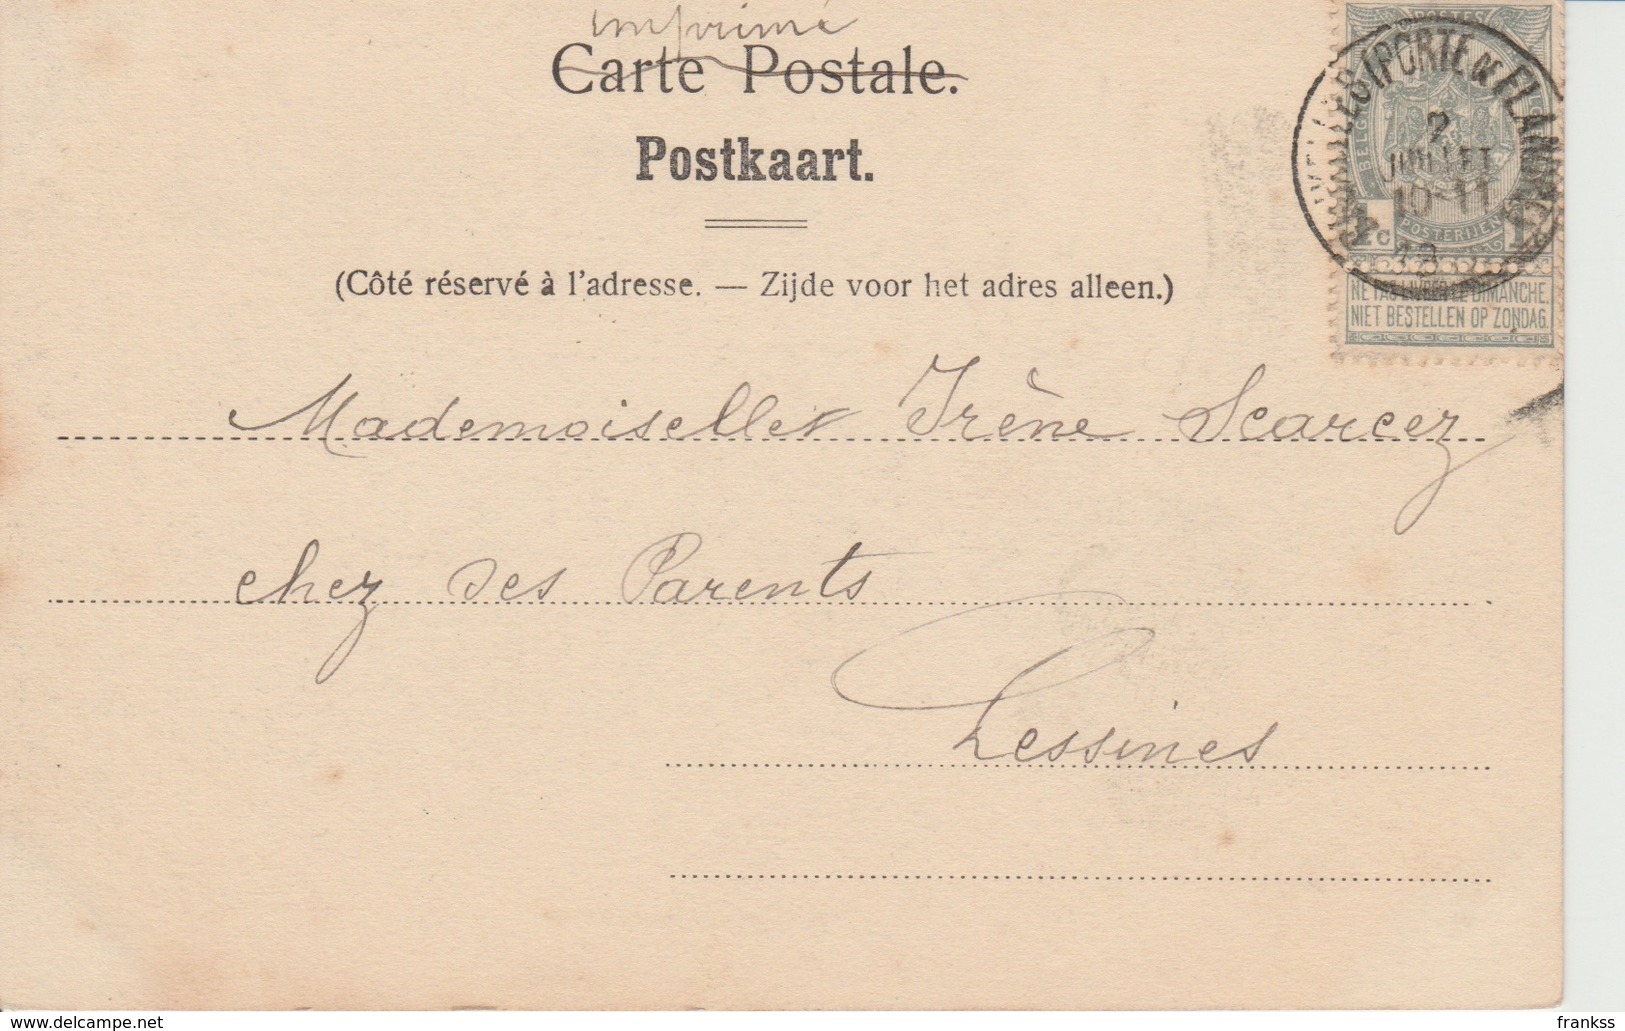 imprimé
Carte Postale.
Postkaart.
(Côté réservé à l'adresse. — Zijde voor het adres alleen.)
(PORTE DE FLANDRE)
2
JUILLET
10-11
1c
POSTERIJEN
1
NE PAS LIVRER LE DIMANCHE.
NIET BESTELLEN OP ZONDAG.
Mademoiselle Irène Scarcez
chez ses Parents
Lessines
delcampe.net
frankss